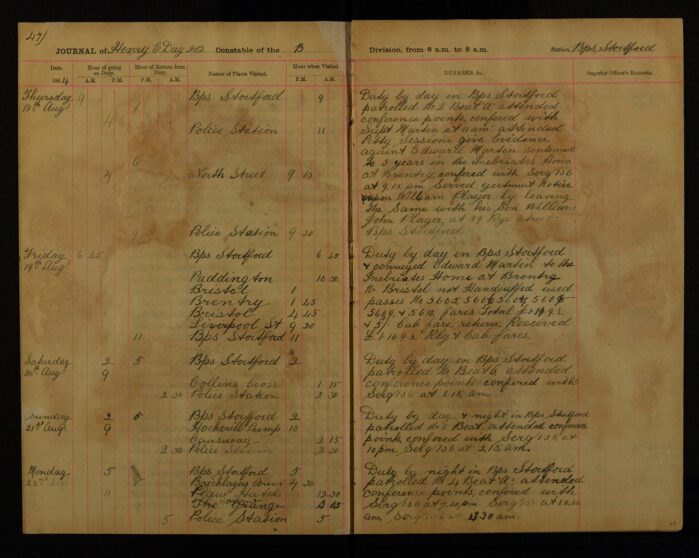 47)
JOURNAL of Henry C Day 202 Constable of the B Division, from 8 a.m. to 8 a.m. Station, Bps Stortford
Date. Hour of going on Duty. Hour of Return from Duty. Names of Places Visited. Hour when Visited. REMARKS, &c. Superior Officer's Remarks.
1904 A.M. P.M. A.M. P.M. P.M.
Thursday 9 Bps Stortford 9
18th Aug
Police Station 11
North Street 9 15
Police Station 9 30
Duty by day in Bps Stortford
patrolled No 2 Beat A attended
conference points, confered with
Supt Martin at 11 am attended
Petty Sessions give Evidence
against Edward Martin sentenced
to 3 years in the Inebriates Home
at Brentry confered with Serg 136
at 9.15 pm Served ejectment Notice
upon William Player by leaving
the Same with his Son William
John Player, at 39 Rye Street
Bps Stortford
Friday 6 45 Bps Stortford 6 45
19th Aug
Paddington 10 30
Bristol 1
Brentry 1 45
Bristol 4 45
Liverpool St 9 30
11 Bps Stortford 11
Duty by day in Bps Stortford
& conveyed Edward Martin to the
Inebriates Home at Brentry
Nr Bristol not Handcuffed used
passes No 5605, 5606 5607 5608
5609, & 5610, fares Total
& 5/- Cab fare, return, Received
Rly & Cab fares,
Saturday 2 5 Bps Stortford 2
20th Aug 9
Collins Cross 1 15
2 30 Police Station 2 30
Duty by day in Bps, Stortford
patrolled No Beat 6 attended
conference points confered with
Serg 136 at 1.15, am.
Sunday 2 5 Bps Stortford 2
21st Aug 9 Hockerill Pump 10
Causway 2 15
2 30 Police Station 2 30
Duty by day & night in Bps Stortford
patrolled Beat attended conference
points, confered with Serg 136 at
10 pm, Serg 136 at 2.15 am,
Monday 5 Bps Stortford 5
22nd Aug Bricklayers Arms 7 30
11 Plaw Hatch 12 30
The Grange
5 Police Station 5
Duty by night in Bps Stortford
patrolled No 4 Beat A attended
Conference points, confered with
Serg 136 at 7.30 pm Serg at 12.30
am Serg 3.30 am